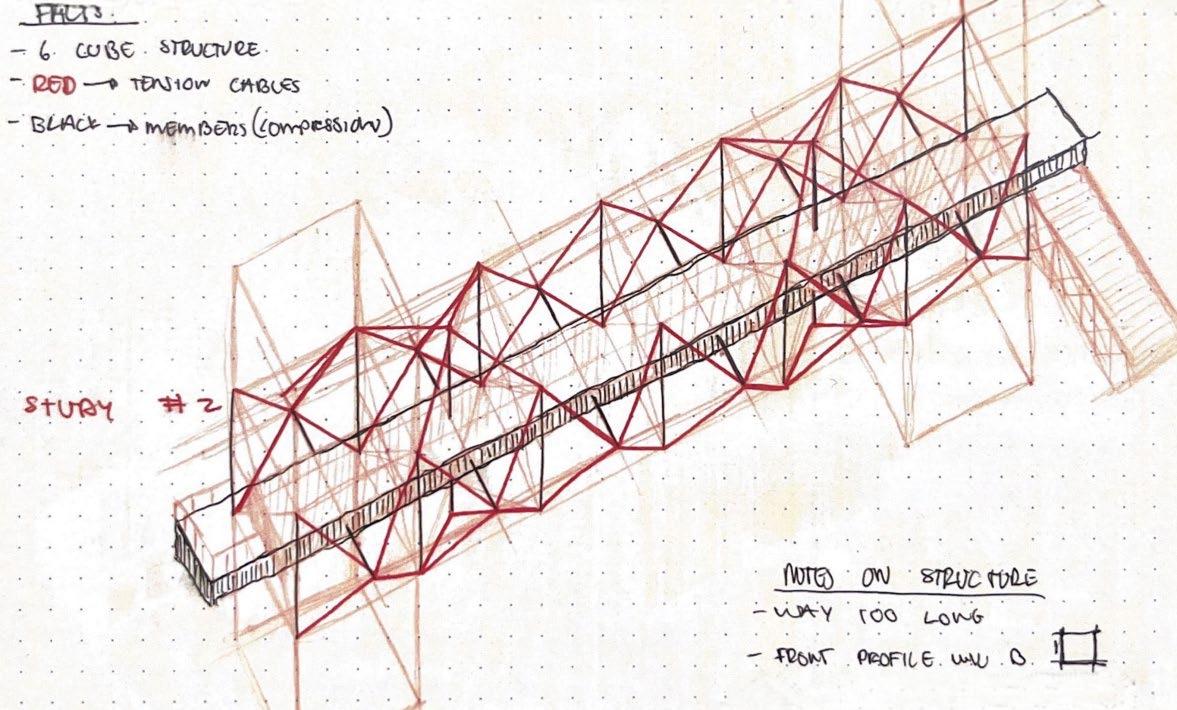 FACTS.
- 6. CUBE. STRUCTURE.
- RED → TENSION CABLES
- BLACK → MEMBERS (COMPRESSION)
STUDY #2
NOTES ON STRUCTURE
- WAY TOO LONG
- FRONT PROFILE. B.